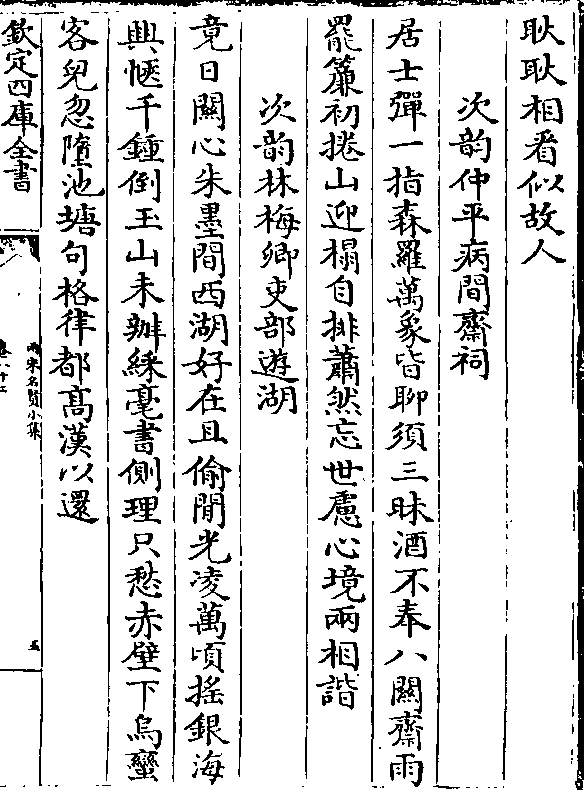 耿耿相看似故人
次韵仲平病間齋祠
居士彈一指森羅萬象皆聊須三昧酒不奉八闗齋雨
罷簾初捲山迎榻自排蕭然忘世慮心境兩相諧
次韵林梅卿吏部遊湖
竟日闗心朱墨間西湖好在且偷閒光凌萬頃搖銀海
興愜千鍾倒玉山未辦綵毫書側理只愁赤壁下烏蠻
客兒忽墮池塘句格律都髙漢以還
欽定四庫全書
兩宋名賢小集
五